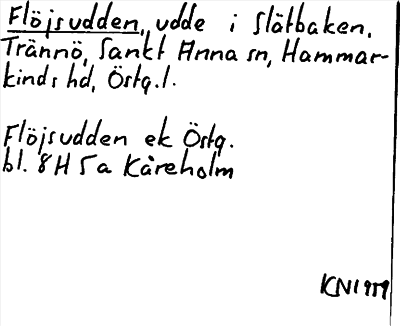 Flöjsudden, udde i Slätbaken,
Trännö, Sankt Anna sn, Hammar-
kinds hd, Östg. l.
Flöjsudden ek Östg.
bl. 8H 5a Kåreholm
KN 1959